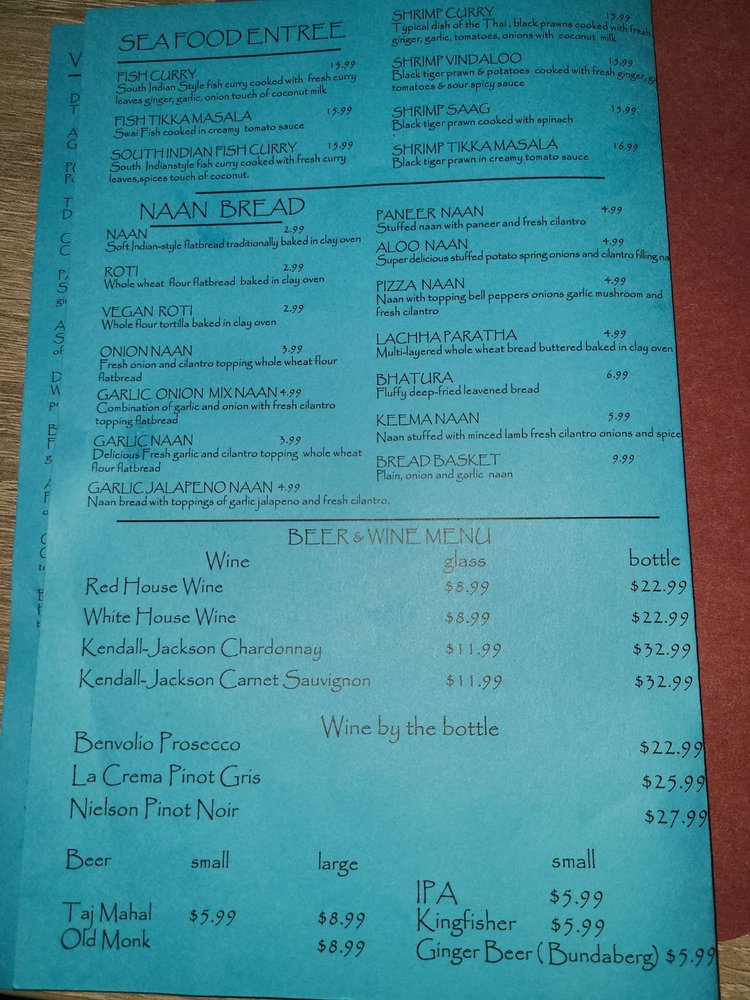 SEAFOOD ENTREE
FISH CURRY 15.99
South Indian Style fish curry cooked with fresh curry
leaves ginger, garlic, onion touch of coconut milk
FISH TIKKA MASALA 15.99
Swai Fish cooked in creamy tomato sauce
SOUTH INDIAN FISH CURRY 15.99
South Indianstyle fish curry cooked with fresh curry
leaves,spices touch of coconut.
SHRIMP CURRY 15.99
Typical dish of the Thai , black prawns cooked with fresh
ginger, garlic, tomatoes, onions with coconut milk
SHRIMP VINDALOO 15.99
Black tiger prawn & potatoes cooked with fresh ginger, ga
tomatoes & sour spicy sauce
SHRIMP SAAG 15.99
Black tiger prawn cooked with spinach
SHRIMP TIKKA MASALA 16.99
Black tiger prawn in creamy tomato sauce
NAAN BREAD
NAAN 2.99
Soft Indian-style flatbread traditionally baked in clay oven
ROTI 2.99
Whole wheat flour flatbread baked in clay oven
VEGAN ROTI 2.99
Whole flour tortilla baked in clay oven
ONION NAAN 3.99
Fresh onion and cilantro topping whole wheat flour
flatbread
GARLIC ONION MIX NAAN 4.99
Combination of garlic and onion with fresh cilantro
topping flatbread
GARLIC NAAN 3.99
Delicious Fresh garlic and cilantro topping whole wheat
flour flatbread
GARLIC JALAPENO NAAN 4.99
Naan bread with toppings of garlic jalapeno and fresh cilantro.
PANEER NAAN 4.99
Stuffed naan with paneer and fresh cilantro
ALOO NAAN 4.99
Super delicious stuffed potato spring onions and cilantro filling na
PIZZA NAAN 4.99
Naan with topping bell peppers onions garlic mushroom and
fresh cilantro
LACHHA PARATHA 4.99
Multi-layered whole wheat bread buttered baked in clay oven
BHATURA 6.99
Fluffy deep-fried leavened bread
KEEMA NAAN 5.99
Naan stuffed with minced lamb fresh cilantro onions and spice
BREAD BASKET 9.99
Plain, onion and garlic naan
BEER & WINE MENU
Wine glass bottle
Red House Wine $8.99 $22.99
White House Wine $8.99 $22.99
Kendall-Jackson Chardonnay $11.99 $32.99
Kendall-Jackson Carnet Sauvignon $11.99 $32.99
Wine by the bottle
Benvolio Prosecco $22.99
La Crema Pinot Gris $25.99
Nielson Pinot Noir $27.99
Beer small large
Taj Mahal $5.99 $8.99
Old Monk $8.99
small
IPA $5.99
Kingfisher $5.99
Ginger Beer ( Bundaberg) $5.99